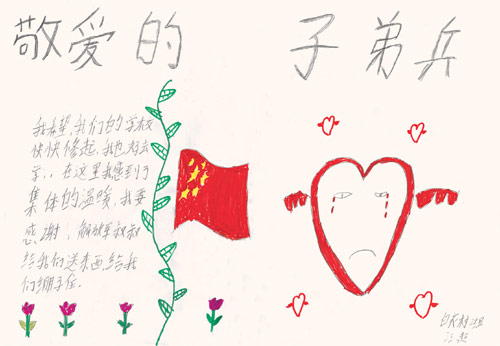 敬爱的 子弟兵
我希望,我们的学校
快快修起,我也好去
学,,在这里我感到了
集体的温暖,我要
感谢,解放军叔叔
给我们送东西,给我
们